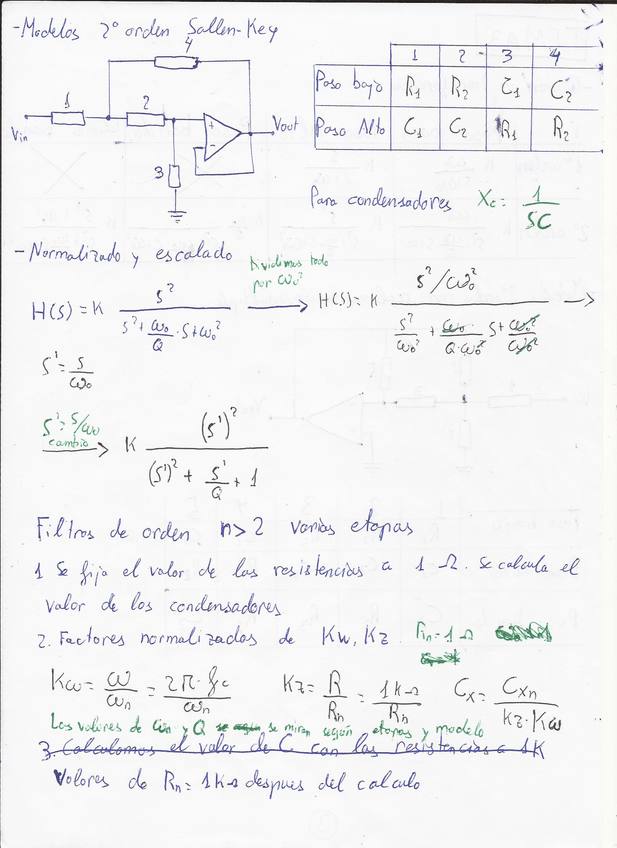 - Modelos 2º orden Sallen-Key
4
1 2
3
+
-
Vin
Vout
1 2 3 4
Paso bajo R1 R2 C1 C2
Paso Alto C1 C2 R1 R2
Para condensadores Xc = 1/SC
- Normalizado y escalado
Dividimos todo por ωo²
H(S) = K S² / (S² + ωo/Q · S + ωo²) → H(S) = K (S²/ωo²) / (S²/ωo² + ωo/(Q·ωo²) S + ωo²/ωo²) →
S' = S/ωo
S' = S/ωo
cambio
→ K (S')² / ((S')² + S'/Q + 1)
Filtros de orden n>2 varias etapas
1 Se fija el valor de las resistencias a 1 Ω. Se calcula el
valor de los condensadores
2. Factores normalizados de Kw, Kz. Rn = 1 Ω
Kω = ω/ωn = 2π·fc/ωn Kz = R/Rn = 1KΩ/Rn Cx = Cxn/(Kz·Kω)
Los valores de ωn y Q se miran según etapas y modelo
3. Calculamos el valor de C con las resistencias a 1K
Valores de Rn = 1KΩ despues del calculo